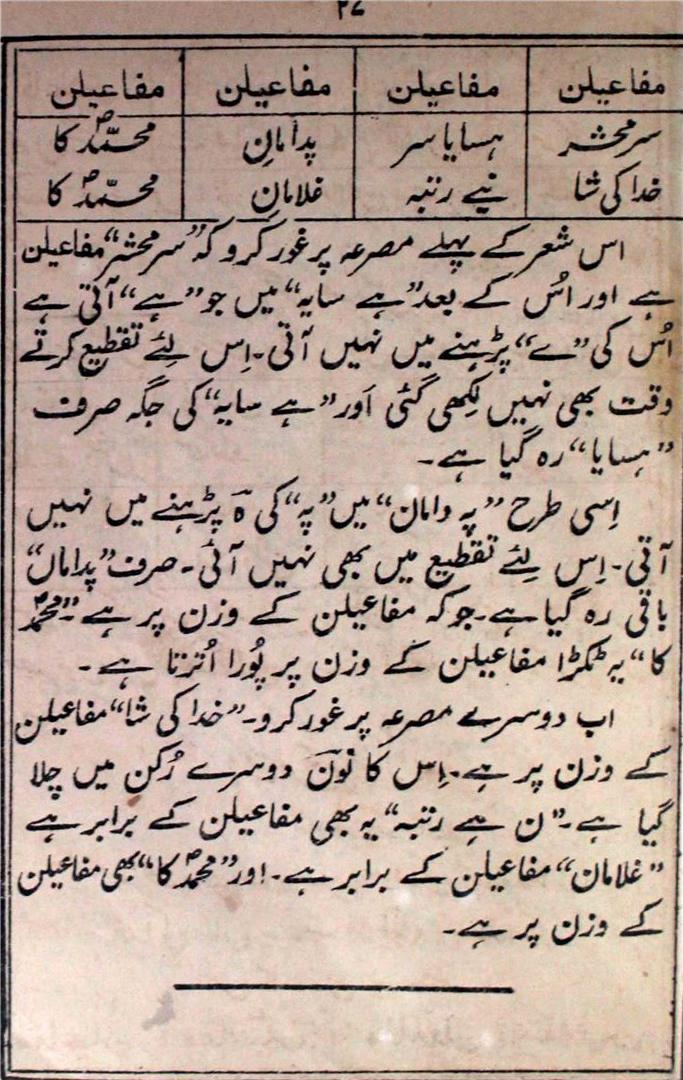 ۲۷
مفاعیلن مفاعیلن مفاعیلن مفاعیلن
سرِ محشر ہسایا سر پدامانِ محمّدؐ کا
خدا کی شا نہے رتبہ غلامانِ محمّدؐ کا
اس شعر کے پہلے مصرعہ پر غور کرو کہ ”سر محشر“ مفاعیلن
ہے اور اُس کے بعد ”ہے سایہ“ میں جو ”ہے“ آتی ہے
اُس کی ”ے“ پڑہنے میں نہیں آتی۔ اِس لِئے تقطیع کرتے
وقت بھی نہیں لِکھی گئی اَور ”ہے سایہ“ کی جگہ صرف
”ہسایا“ رہ گیا ہے۔
اِسی طرح ”پہ دامان“ میں ”پہ“ کی ہ پڑہنے میں نہیں
آتی۔ اِس لِئے تقطیع میں بھی نہیں آئی۔ صرف ”پداماں“
باقی رہ گیا ہے۔ جو کہ مفاعیلن کے وزن پر ہے۔ ”محمدؐ
کا“ یہ ٹکڑا مفاعیلن کے وزن پر پُورا اُترتا ہے۔
اب دوسرے مصرعہ پر غور کرو۔ ”خدا کی شا“ مفاعیلن
کے وزن پر ہے۔ اِس کا نون دوسرے رُکن میں چلا
گیا ہے۔ ”ن ہے رتبہ“ یہ بھی مفاعیلن کے برابر ہے
”غلامان“ مفاعیلن کے برابر ہے۔ اور ”محمدؐ کا“ بھی مفاعیلن
کے وزن پر ہے۔